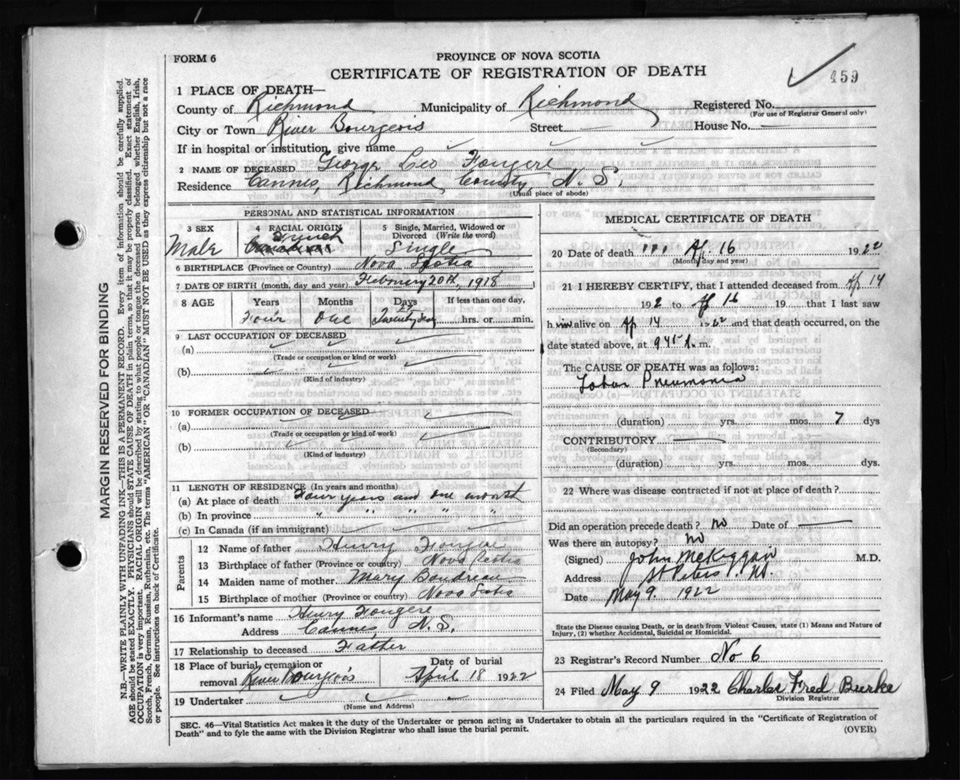 FORM 6
PROVINCE OF NOVA SCOTIA
CERTIFICATE OF REGISTRATION OF DEATH
459
1 PLACE OF DEATH—
County of Richmond Municipality of Richmond Registered No.
(For use of Registrar General only)
City or Town River Bourgeois Street House No.
If in hospital or institution, give name
2 NAME OF DECEASED George Leo Fougere
Residence Cannes, Richmond County N. S.
(Usual place of abode)
PERSONAL AND STATISTICAL INFORMATION
3 SEX 4 RACIAL ORIGIN 5 Single, Married, Widowed or Divorced (Write the word)
Male French Single
6 BIRTHPLACE (Province or Country) Nova Scotia
7 DATE OF BIRTH (month, day, and year) February 20th, 1918
8 AGE Years Months Days If less than one day,
Four One hrs. or min.
9 LAST OCCUPATION OF DECEASED
(a)
(Trade or occupation or kind or work)
(b)
(Kind of industry)
10 FORMER OCCUPATION OF DECEASED
(a)
(Trade or occupation or kind of work)
(b)
(Kind of industry)
11 LENGTH OF RESIDENCE (In Years and Months)
(a) At place of death Four years and one month
(b) In province " " " " "
(c) In Canada (if an immigrant)
Parents
12 Name of father Henry Fougere
13 Birthplace of father (Province or country) Nova Scotia
14 Maiden name of mother Mary Boudreau
15 Birthplace of mother (Province or country) Nova Scotia
16 Informant's name Henry Fougere
Address Cannes, N. S.
17 Relationship to deceased Father
18 Place of burial, cremation or removal River Bourgeois Date of burial April 18 1922
19 Undertaker
(Name and Address)
MEDICAL CERTIFICATE OF DEATH
20 Date of death Ap 16 1922
(Month, day and year)
21 I HEREBY CERTIFY, that I attended deceased from Ap 14
192 to Ap 16 19 that I last saw
him alive on Ap 14 1922 and that death occurred, on the
date stated above, at 9 45 A. m.
The CAUSE OF DEATH was as follows:
Lobar Pneumonia
(duration) yrs. mos. 7 dys
CONTRIBUTORY
(Secondary)
(duration) yrs. mos. dys.
22 Where was disease contracted if not at place of death?
Did an operation precede death? no Date of
Was there an autopsy? no
(Signed) John McKiggan M.D.
Address St Peters
Date May 9. 1922
State the Disease causing Death, or in death from Violent Causes, state (1) Means and Nature of
Injury, (2) whether Accidental, Suicidal or Homicidal.
23 Registrar's Record Number No 6
24 Filed May 9 1922 Charles Fred Burke
Division Registrar
SEC. 46—Vital Statistics Act makes it the duty of the Undertaker or person acting as Undertaker to obtain all the particulars required in the "Certificate of Registration of
Death" and to fyle the same with the Division Registrar who shall issue the burial permit.
(OVER)
MARGIN RESERVED FOR BINDING
N.B.—WRITE PLAINLY WITH UNFADING INK—THIS IS A PERMANENT RECORD. Every item of information should be carefully supplied.
AGE should be stated EXACTLY. PHYSICIANS should STATE CAUSE OF DEATH in plain terms, so that it may be properly classified. Exact statement of
OCCUPATION is very important. RACIAL ORIGIN will be described by stating to what people or tongue the deceased person belonged whether English, Irish,
Scotch, French, German, Russian, Ruthenian, etc. The terms "AMERICAN" OR "CANADIAN" MUST NOT BE USED as they express citizenship but not a race
or people. See instructions on back of Certificate.